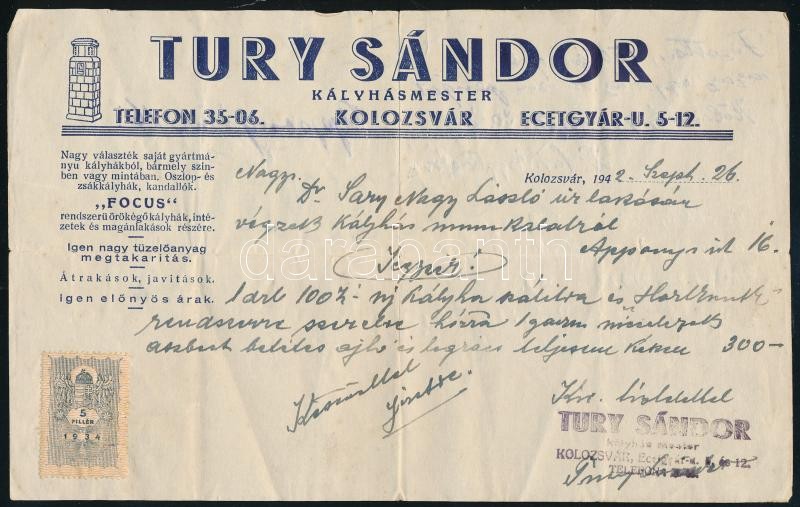 TURY SÁNDOR
KÁLYHÁSMESTER
TELEFON 35-06. KOLOZSVÁR ECETGYÁR-U. 5-12.
Nagy választék saját gyártmá-
nyu kályhákból, bármely szin-
ben vagy mintában. Oszlop- és
zsákkályhák, kandallók.
„FOCUS"
rendszerü örökégő kályhák, inté-
zetek és magánlakások részére.
Igen nagy tüzelőanyag
megtakaritás.
Átrakások, javitások.
igen előnyös árak.
Kolozsvár, 1942 Szept. 26.
Nagys.
Dr. Sary Nagy László úr lakásán
végzett Kályhás munkálatról
Apponyi út 16.
1 drb 100 új Kályha és
rendszerre szerelve
azbest betétes ajtó és teljesen Készen 300—
Köszönettel
Kíváló tisztelettel
TURY SÁNDOR
kályhás mester
KOLOZSVÁR, Ecetgyár-u. 5, és 12.
TELEFON
5
FILLÉR
1934
darabanth